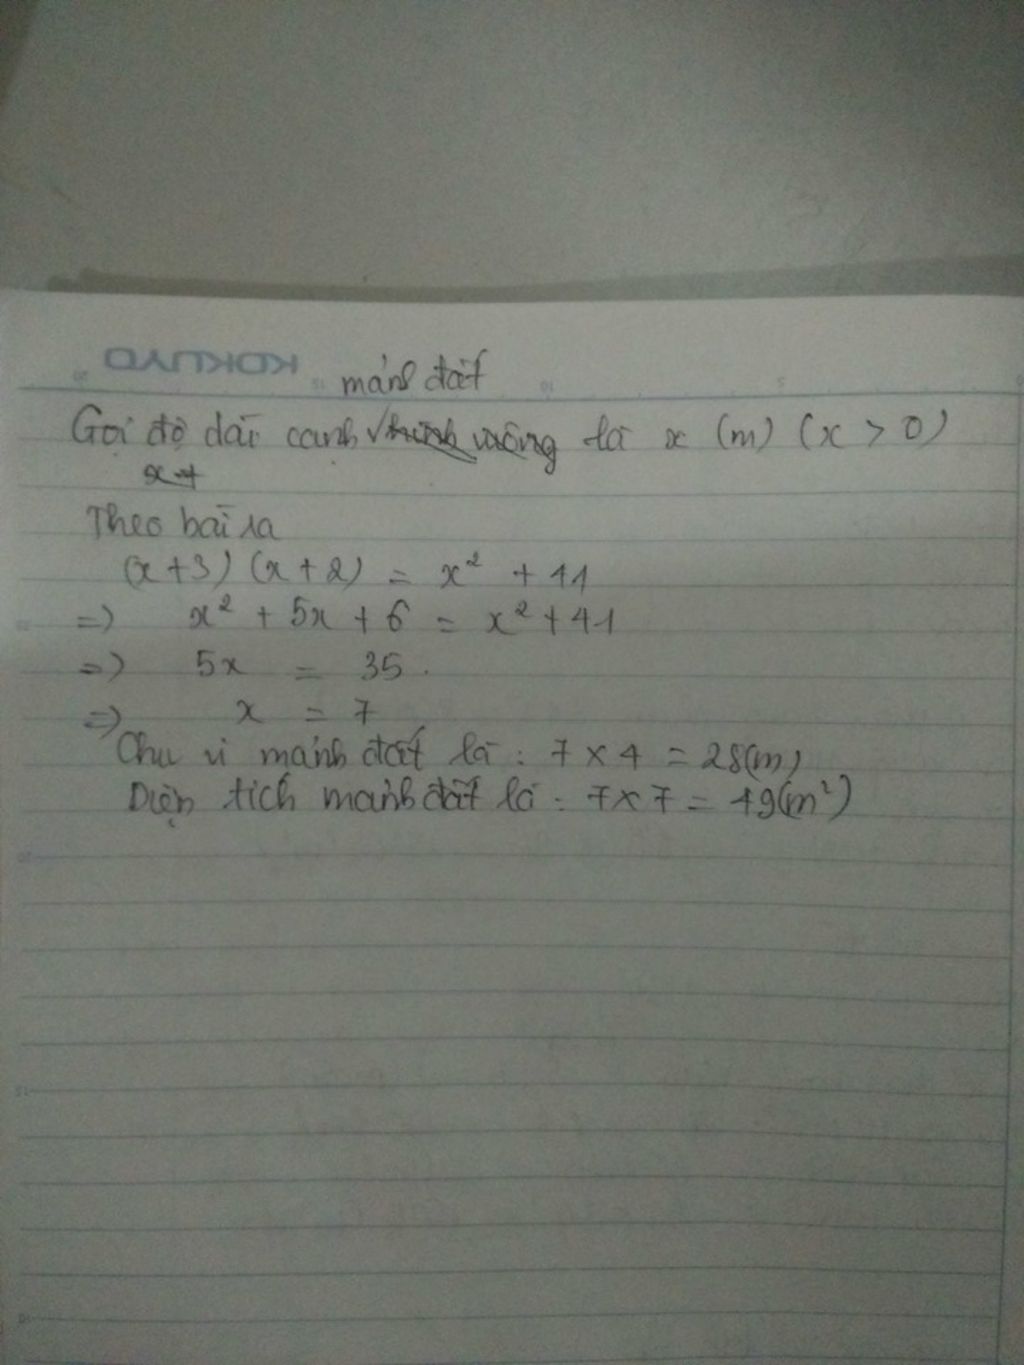 KOKUYO
mảnh đất
Gọi độ dài cạnh hình vuông là x (m) (x > 0)
Theo bài ra
(x+3) (x+2) = x² + 41
=> x² + 5x + 6 = x² + 41
=> 5x = 35.
=> x = 7
Chu vi mảnh đất là : 7 x 4 = 28(m)
Diện tích mảnh đất là : 7x7 = 49(m²)